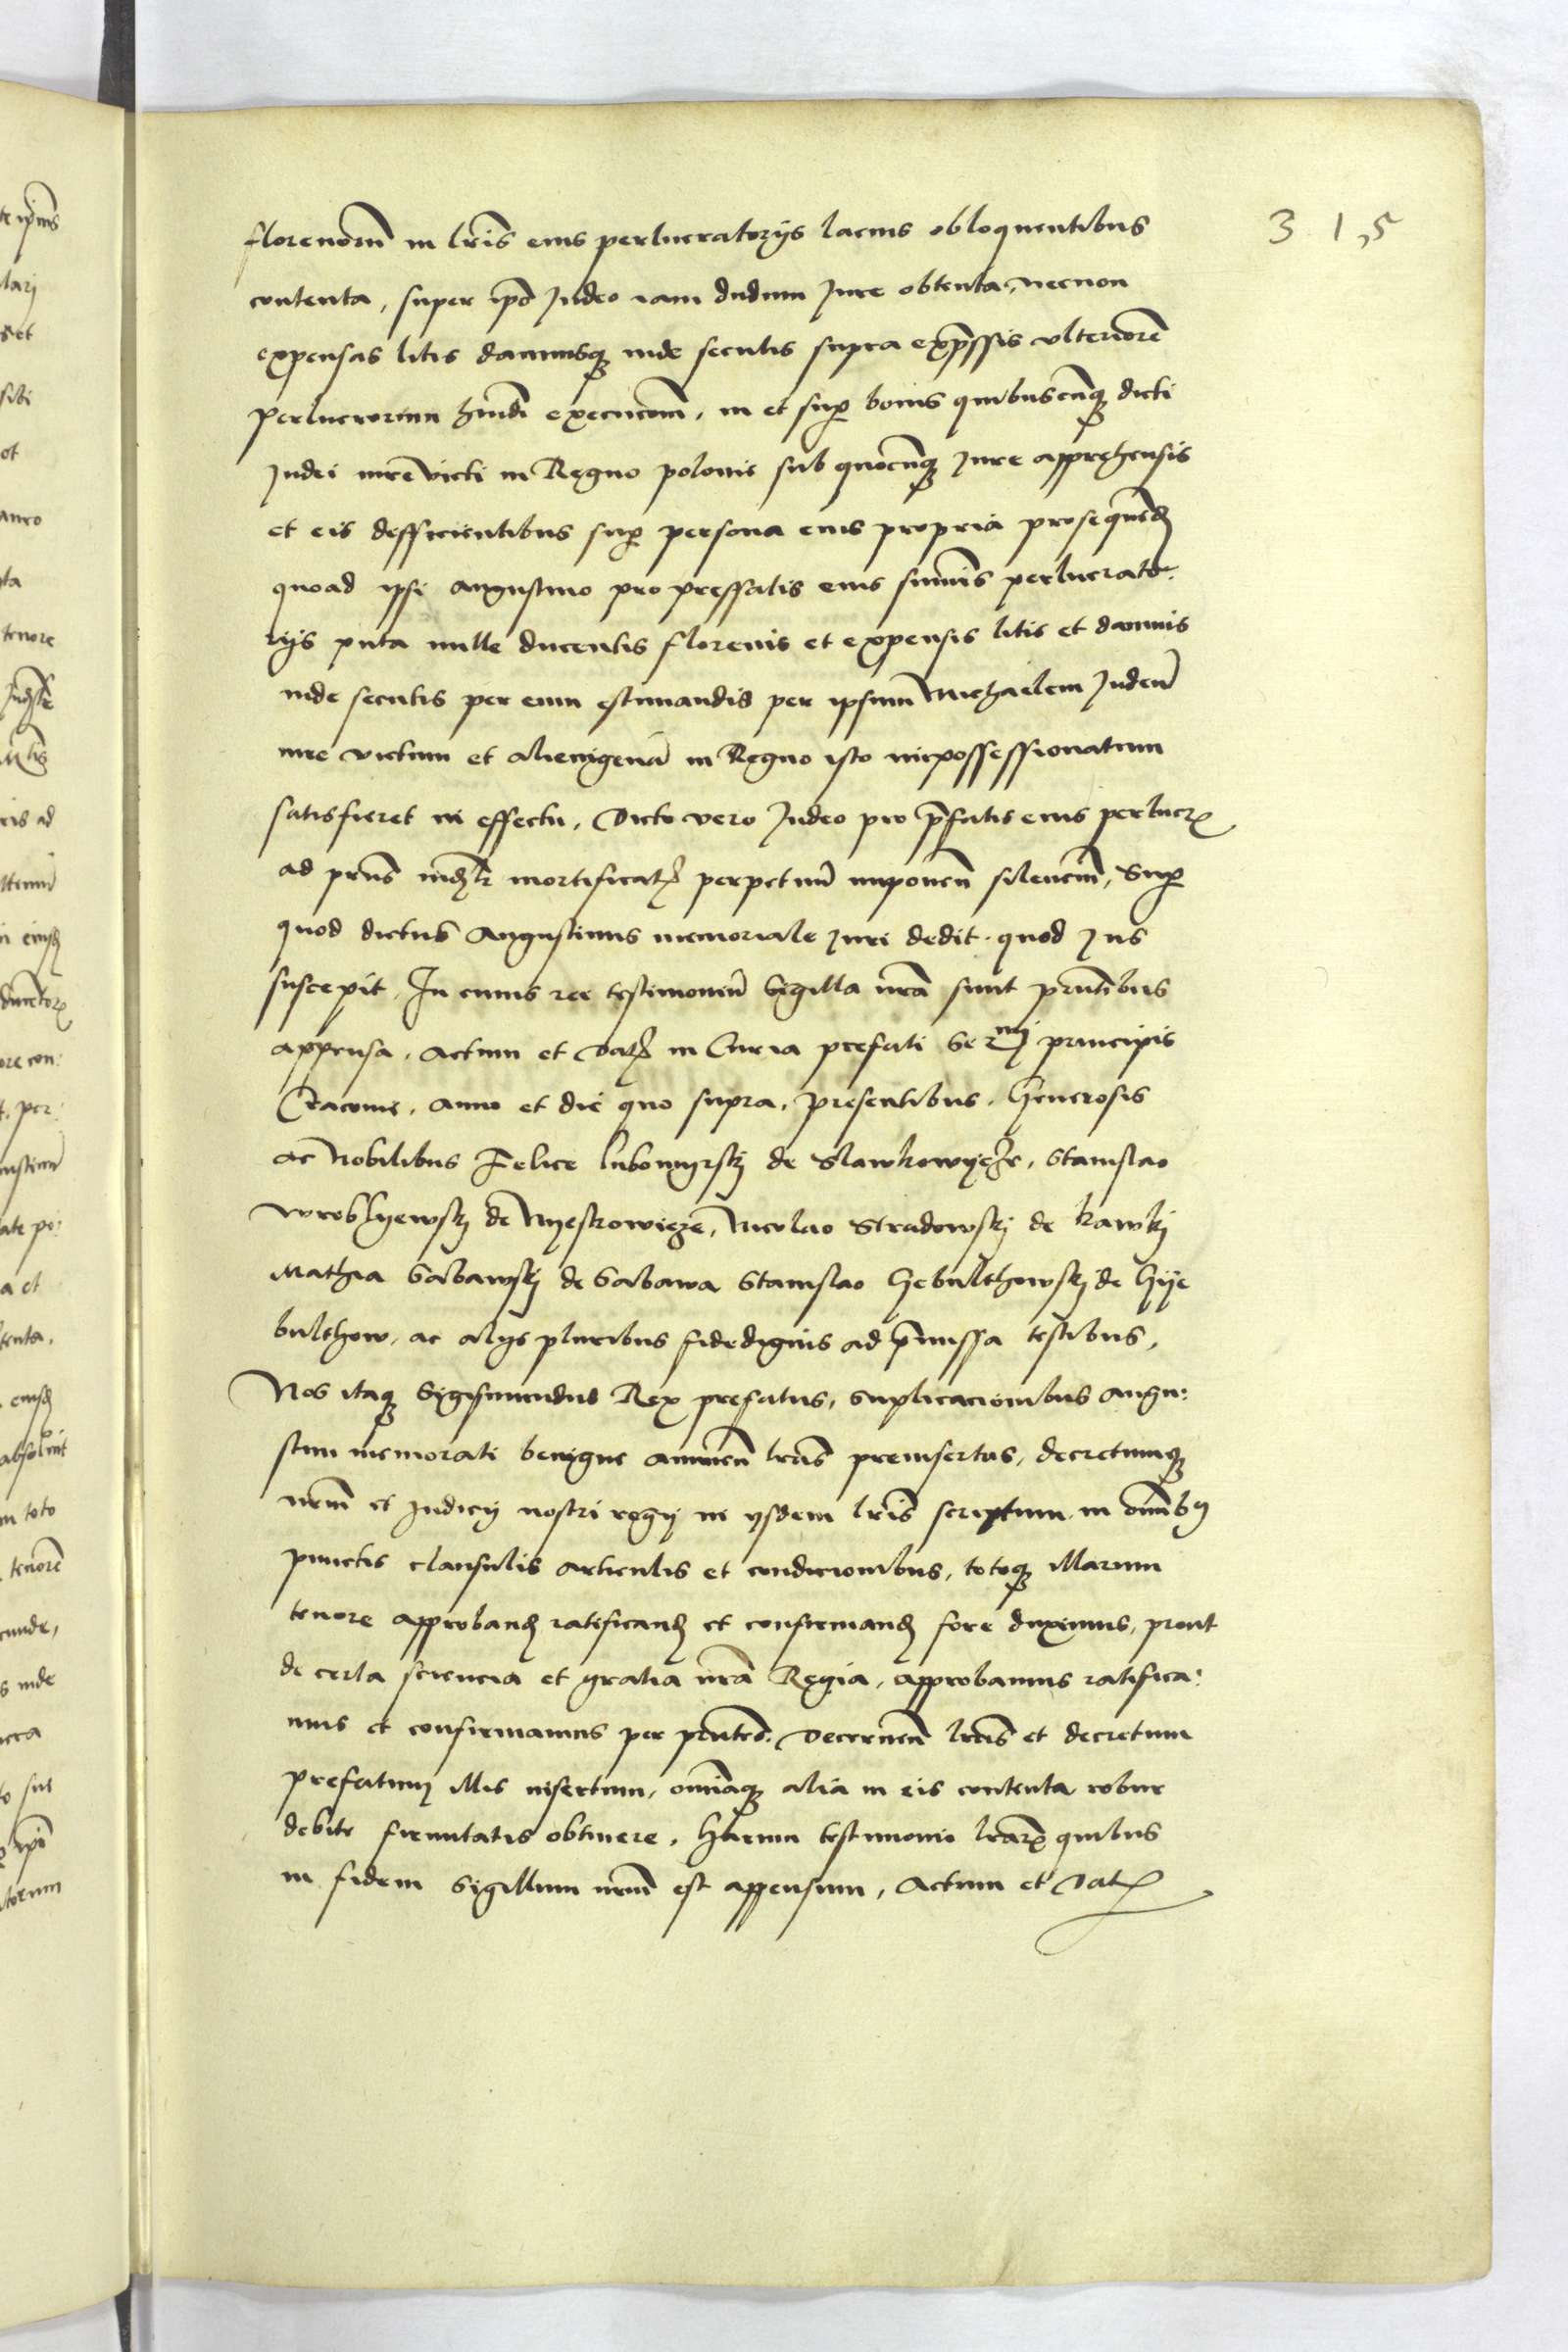 315
florenorum in lris eius perlucratorijs lacius obloquentibus
contenta, super ipso Judeo iam dudum Jure obtenta, necnon
expensas litis damnisque inde secutis supra expressis vlteriorem
perlucrorum hmodi execucionem, in et super bonis quibuscunque dicti
Judei iure victi in Regno polonie sub quocunque Jure apprehensis
et eis defficientibus super persona eius propria prosequend
quoad ipsi Augustino pro preffatis eius summis perlucrato:
rijs puta mille ducentis florenis et expensis litis et damnis
inde secutis per eum estimandis per ipsum Michaelem Judeum
iure victum et alienigenam in Regno isto inpossessionatum
satisfieret in effectu, Dicto vero Judeo pro prefatis eius perlucr
ad prius mortificat perpetuum imponen silencium, Super
quod dictus Augustinus memoriale Juri dedit. quod Jus
suscepit. In cuius rei testimonium Sigilla nra sunt prntibus
appensa. Actum et Dat in Curia prefati Sermi principis
Cracovie, Anno et die quo supra, presentibus, Generosis
ac Nobilibus Felice lubomyrskj de Slawkowycze, Stanislao
Wroblyewskj de Nyeskowicze, Nicolao Stradowskj de kawkj
Mathia Sabawskj de Sabawa Stanislao Gebulthowskj de Gye
bulthow, ac alijs pluribus fidedignis ad premissa testibus,
Nos itaque Sigismundus Rex prefatus, suplicacionibus Augu:
stini memorati benigne annuen lras preinsertas, decretumque
nrum et Judicij nostri regij in ysdem lris scriptum. in omnibus
punctis clausulis articulis et condicionibus, totoque illarum
tenore approband ratificand et confirmand fore duximus, prout
de certa sciencia et gratia nra Regia, approbamus ratifica:
mus et confirmamus per prntes. Decernen lras et decretum
prefatum illis insertum, omniaque alia in eis contenta robur
debite firmitatis obtinere, Harum testimonio lrarum quibus
in fidem Sigillum nrum est appensum, Actum et Dat